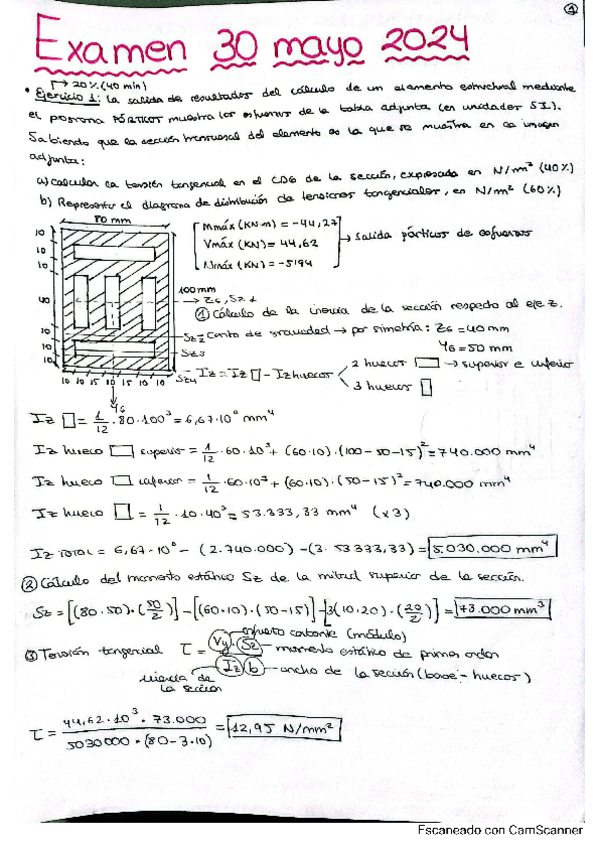 1
Examen 30 mayo 2024
→ 20% (40 min)
• Ejercicio 1: La salida de resultados del cálculo de un elemento estructural mediante
el programa PÓRTICOS muestra los esfuerzos de la tabla adjunta (en unidades SI).
Sabiendo que la sección transversal del elemento es la que se muestra en la imagen
adjunta:
a) Calcular la tensión tangencial en el CDG de la sección, expresada en N/mm² (40%)
b) Representar el diagrama de distribución de tensiones tangenciales, en N/mm² (60%)
80 mm
Mmáx (KN·m) = -44,27
Vmáx (KN) = 44,62
Nmáx (KN) = -5194
→ salida pórticos de esfuerzos
10
10
10
40
10
10
10
100 mm
→ ZG, SZ1
SZ2
SZ3
SZ4
10 10 15 10 15 10 10
YG
① Cálculo de la inercia de la sección respecto al eje Z.
Centro de gravedad → por simetría: ZG = 40 mm
YG = 50 mm
Iz = Iz □ - Iz huecos
2 huecos → superior e inferior
3 huecos
Iz □ = 1/12 · 80 · 100³ = 6,67 · 10⁶ mm⁴
Iz hueco superior = 1/12 · 60 · 10³ + (60·10) · (100-50-15)² = 740.000 mm⁴
Iz hueco inferior = 1/12 · 60 · 10³ + (60·10) · (50-15)² = 740.000 mm⁴
Iz hueco = 1/12 · 10 · 40³ = 53.333,33 mm⁴ (x3)
Iz TOTAL = 6,67·10⁶ - (2·740.000) - (3·53333,33) = 5.030.000 mm⁴
② Cálculo del momento estático Sz de la mitad superior de la sección.
Sz = [(80·50)·(50/2)] - [(60·10)·(50-15)] - [3(10·20)·(20/2)] = 73.000 mm³
esfuerzo cortante (módulo)
③ Tensión tangencial τ = Vy · Sz / Iz · b
momento estático de primer orden
ancho de la sección (base - huecos)
inercia de
la sección
τ = 44,62·10³ · 73.000 / 5030000 · (80-3·10) = 12,95 N/mm²
Escaneado con CamScanner